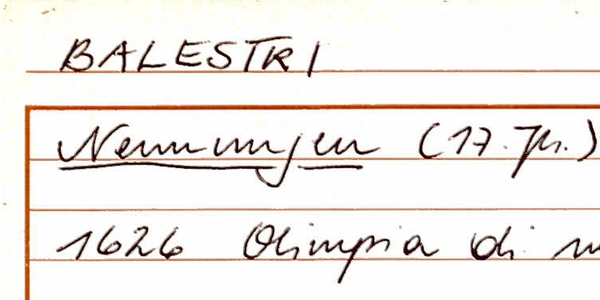 BALESTRI
Nennungen (17. Jh.)
1626 Olimpia di